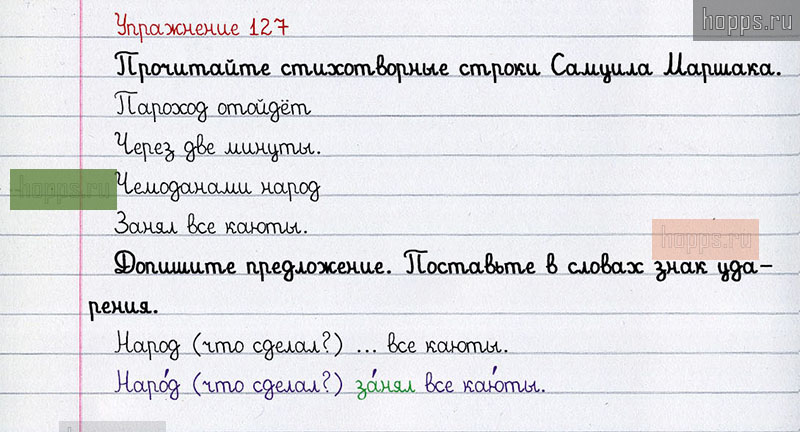 hopps.ru
Упражнение 127
Прочитайте стихотворные строки Самуила Маршака.
Пароход отойдёт
Через две минуты.
hopps.ru
Чемоданами народ
Занял все каюты.
hopps.ru
Допишите предложение. Поставьте в словах знак уда–
рения.
Народ (что сделал?) ... все каюты.
Наро́д (что сделал?) за́нял все каю́ты.